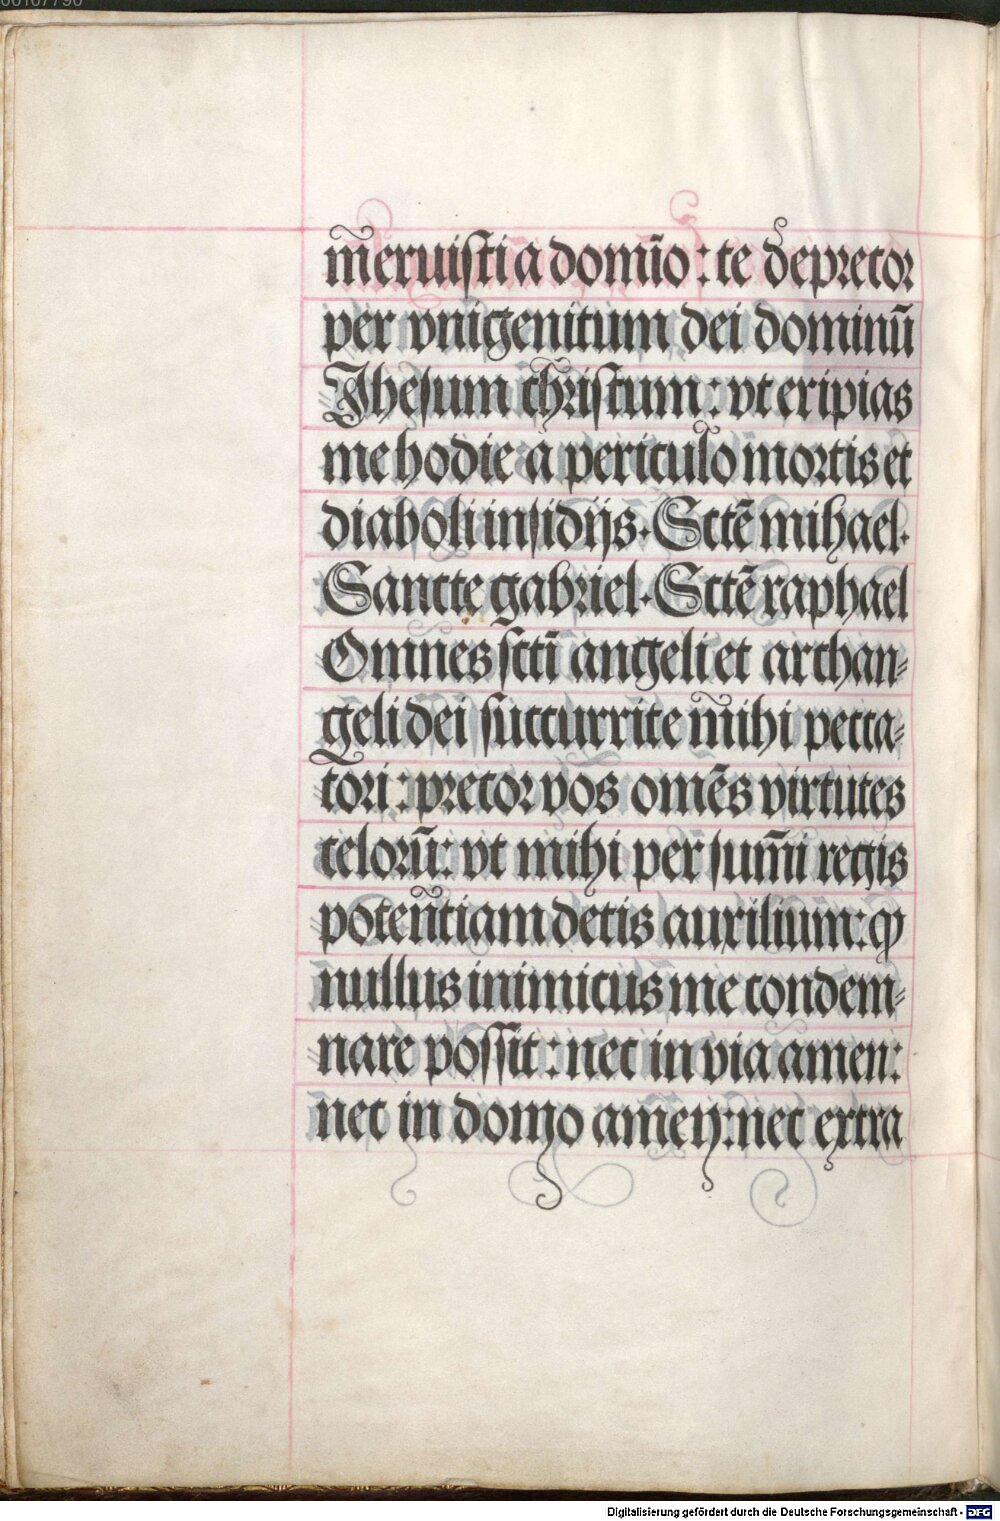 meruisti a domīo : te depretor
per vnigenitum dei dominū
Jhesum christum : vt eripias
me hodie a periculo mortis et
diaboli insidijs. Sctē mihael.
Sancte gabriel. Sctē raphael
Omnes sctī angeli et archan-
geli dei succurrite mihi pecca-
tori : precor vos omēs virtutes
celorū : vt mihi per sum̄i regis
potentiam detis auxilium : ꝙ
nullus inimicus me condem-
nare possit : nec in via amen :
nec in domo amen : nec extra
Digitalisierung gefördert durch die Deutsche Forschungsgemeinschaft - DFG